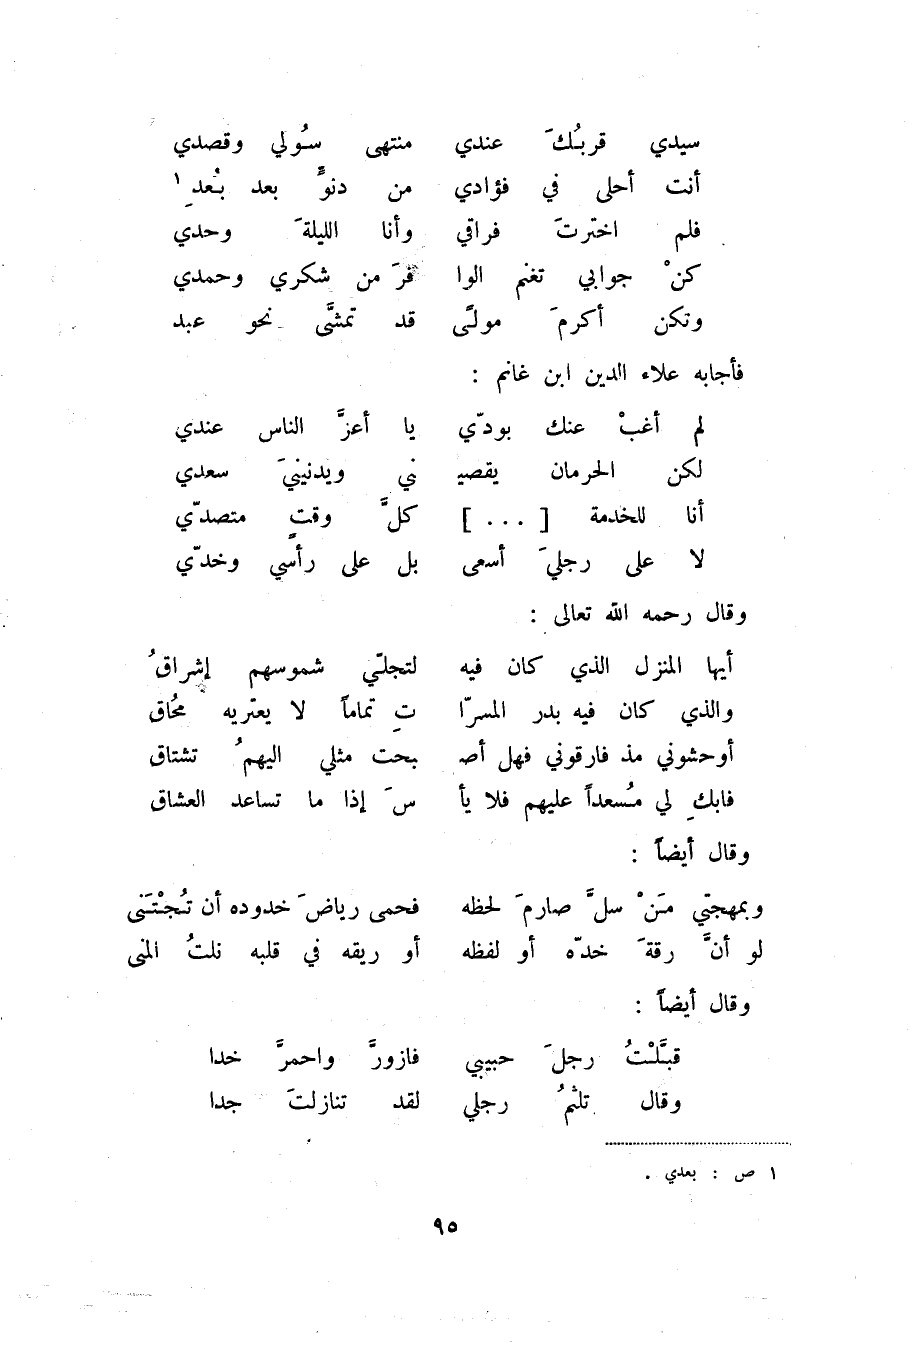 سيدي قربُكَ عندي منتهى سُولي وقصدي
أنت أحلى في فؤادي من دنوٍّ بعد بُعدِ ١
فلم اخترتَ فراقي وأنا الليلةَ وحدي
كنْ جوابي تغنم الوا فرَ من شكري وحمدي
وتكن أكرمَ مولًى قد تمشَّى نحو عبد
فأجابه علاء الدين ابن غانم :
لم أغبْ عنك بودّي يا أعزَّ الناس عندي
لكن الحرمان يقصيـ ني ويدنينيَ سعدي
أنا للخدمة [ . . . ] كلَّ وقتٍ متصدّي
لا على رجليَ أسعى بل على رأسي وخدّي
وقال رحمه الله تعالى :
أيها المنزل الذي كان فيه لتجلّي شموسهم إشراقُ
والذي كان فيه بدر المسرّا تِ تماماً لا يعتريه مُحاق
أوحشوني مذ فارقوني فهل أصـ ـبحت مثلي اليهمُ تشتاق
فابكِ لي مُسعداً عليهم فلا يأ سَ إذا ما تساعد العشاق
وقال أيضاً :
وبمهجتي مَنْ سلَّ صارمَ لحظه فحمى رياضَ خدوده أن تُجْتَنى
لو أنَّ رقةَ خدّه أو لفظه أو ريقه في قلبه نلتُ المنى
وقال أيضاً :
قبَّلْتُ رجلَ حبيبي فازورَّ واحمرَّ خدا
وقال تلثمُ رجلي لقد تنازلتَ جدا
١ ص : بعدي .
٩٥